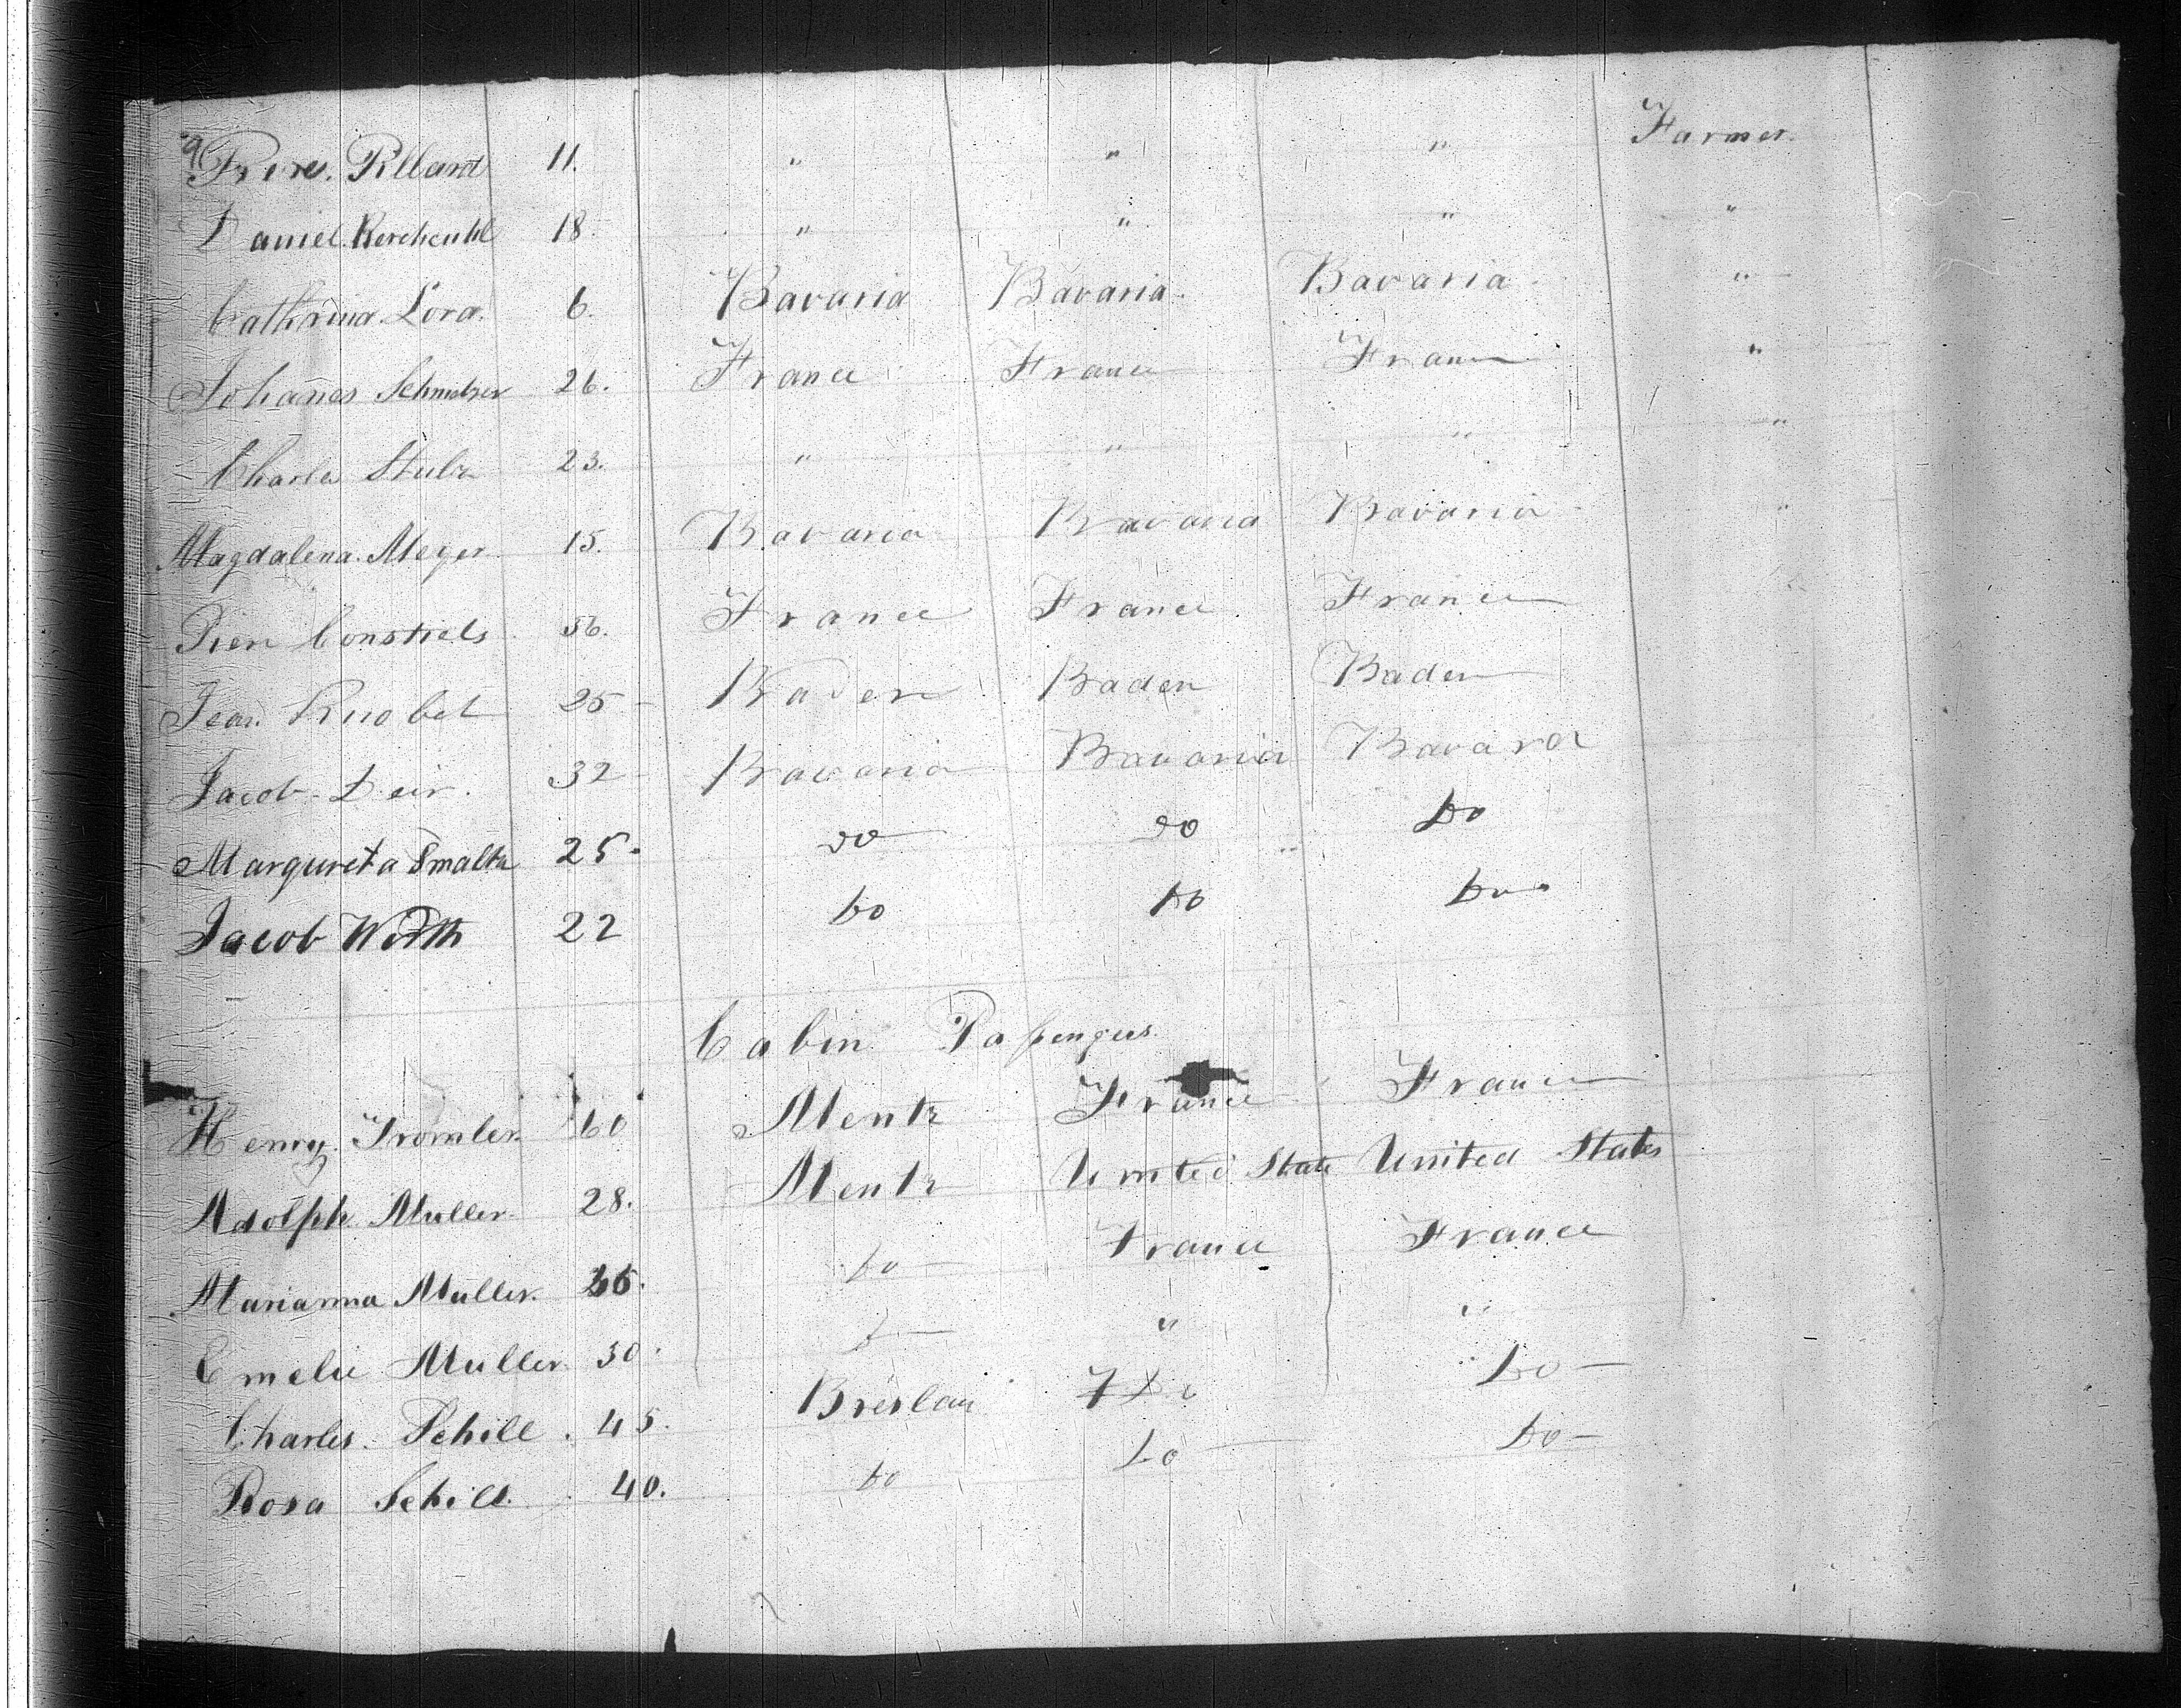 Pillard 11. " " " Farmer.
Daniel. Kerchenhl 18. " " " "
Cathrina Lora. 6. Bavaria Bavaria. Bavaria. "
Johañes Schmelzer 26. France France France "
Charles Stulz 23. " " " "
Magdalena. Meyer. 15. Bavaria Bavaria Bavaria "
Pierr Constiels 56. France France France
Jean Knobel 25 - Baden Baden Baden
Jacob Deir. 32 - Bavaria Bavaria Bavara
Margureta Smaltz 25. do do Do
Jacob Wirth 22 Do Do Do
Cabin Passengers.
Henry. Tromler. 60 Mentz France France
Adolph Muller. 28. Mentz United State United States
Marianna Muller. Do France France
Emelie Muller. 30. " "
Charles. Schill. 45. Breslau Do Do
Rosa Schill. 40. Do Do Do